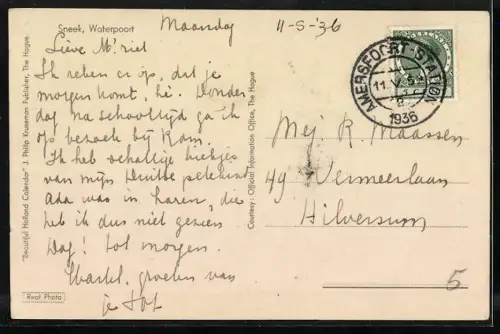 Sneek, Waterpoort
Maandag 11-5-'36
Lieve M!riet
Ik reken er op, dat je
morgen komt, hè. Donder
dag na schooltijd ga ik
op bezoek bij
Ik heb schattige kiekjes
van mijn Duitse
Ada was in Laren, die
heb ik dus niet gezien
Dag! tot morgen.
Hartel. groeten van
je
"Beautiful Holland Calendar" J. Philip Kruseman Publisher, The Hague
Courtesy: Official Information Office, The Hague
Real Photo
AMERSFOORT-STATION
1936
Mej. R. Maassen
49 Vermeerlaan
Hilversum
5